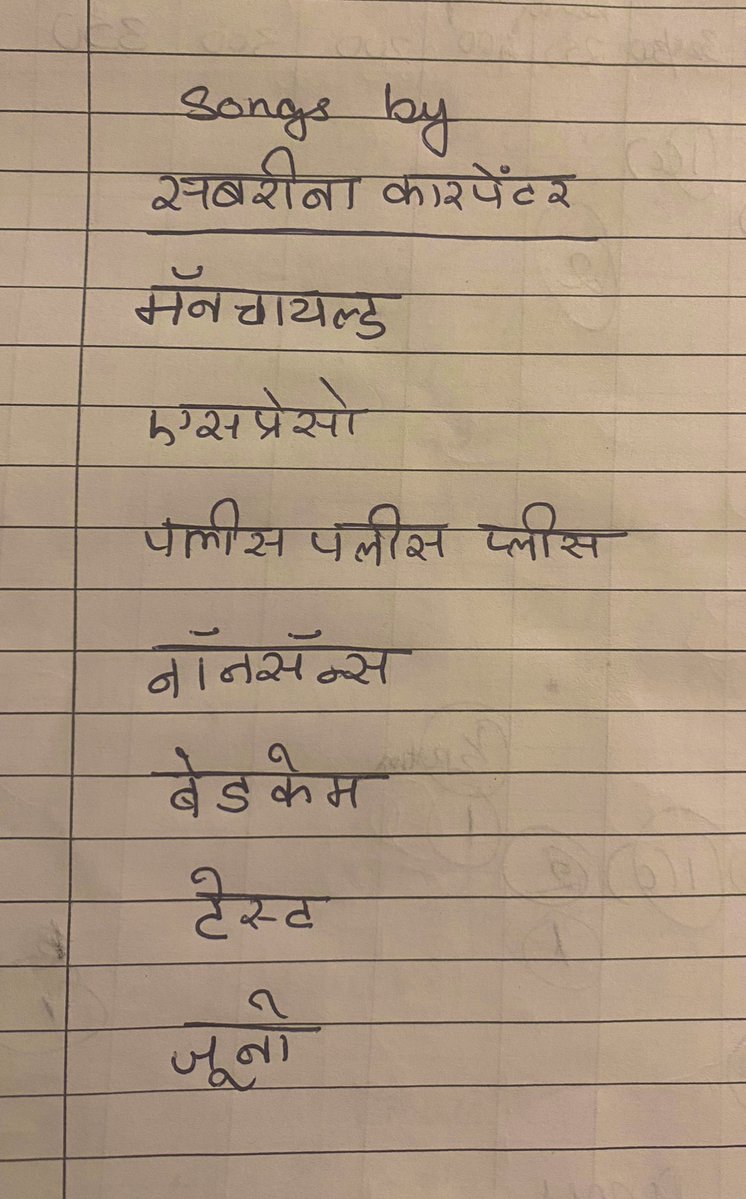 Songs by
सबरीना कारपेंटर
मॅनचायल्ड
एसप्रेसो
पलीस पलीस प्लीस
नॉनसॅन्स
बेडकेम
टेस्ट
जूनो